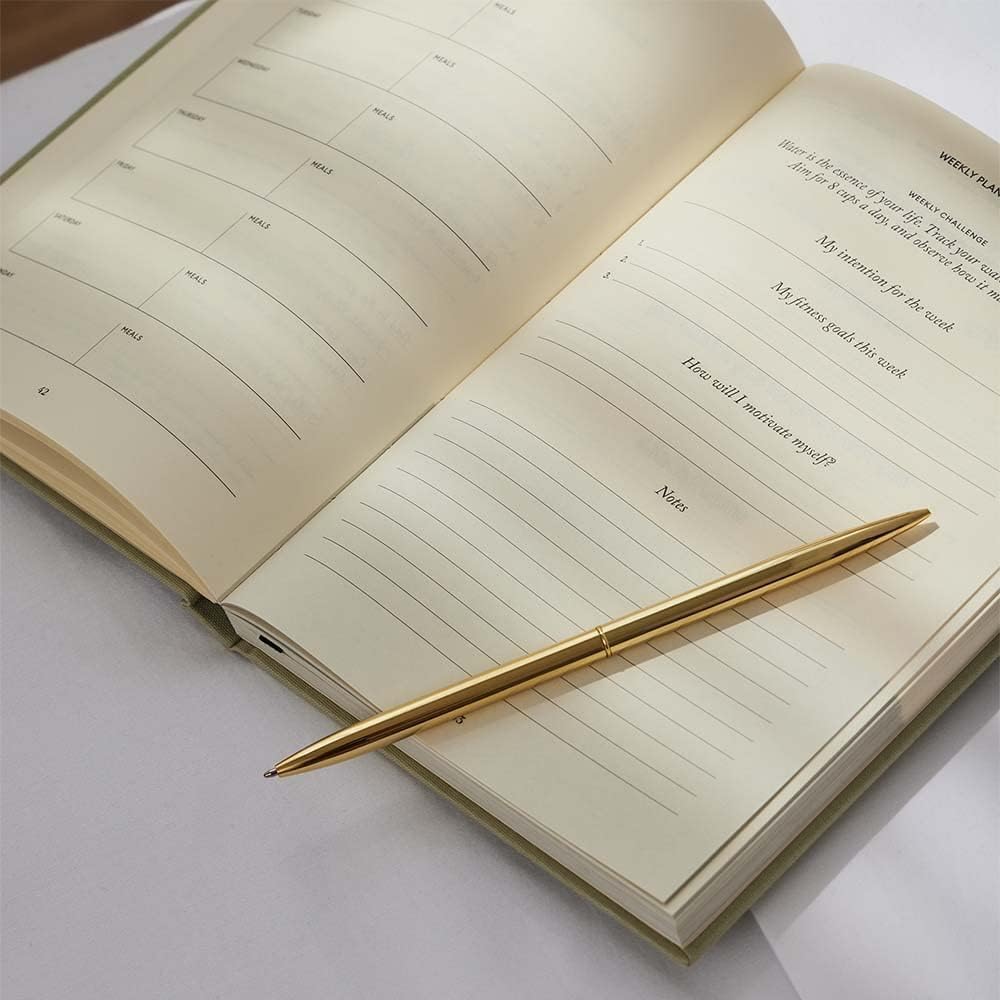 TUESDAY
MEALS
WEDNESDAY
MEALS
THURSDAY
MEALS
FRIDAY
MEALS
SATURDAY
MEALS
MEALS
MEALS
42
WEEKLY
WEEKLY CHALLENGE
Water is the essence of your life. Track your
Aim for 8 cups a day, and observe how it
My intention for the week
1.
2.
3.
My fitness goals this week
How will I motivate myself?
Notes